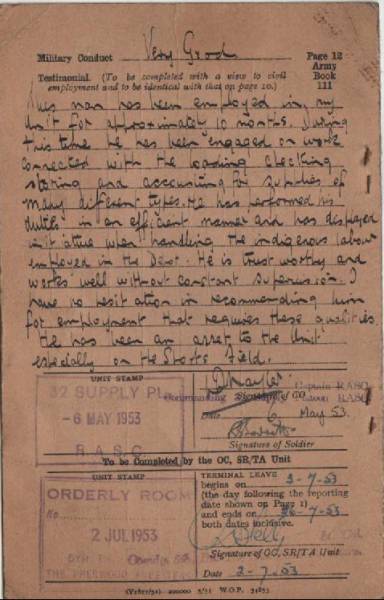 Military Conduct Very Good Page 12
Army
Book
111
Testimonial. (To be completed with a view to civil
employment and to be identical with that on page 10.)
This man has been employed in my
Unit for approximately 10 months. During
this time he has been engaged on work
connected with the loading checking
storing and accounting for supplies of
many different types. He has performed his
duties in an efficient manner and has displayed
initiative when handling the indigenous labour
employed in the Depot. He is trustworthy and
works well without constant supervision. I
have no hesitation in recommending him
for employment that requires these qualities.
He has been an asset to the Unit
especially on the Sports Field.
UNIT STAMP
32 SUPPLY PL.
- 6 MAY 1953
R.A.S.C.
Captain RASC
Commanding
Signature of CO
Date 6 May 53.
Signature of Soldier
To be Completed by the OC, SR/TA Unit
UNIT STAMP
ORDERLY ROOM
No
2 JUL 1953
TERMINAL LEAVE
begins on 3-7-53
(the day following the reporting
date shown on Page 1)
and ends on -7-53
both dates inclusive.
Signature of OC, SR/TA Unit
Date 2-7-53